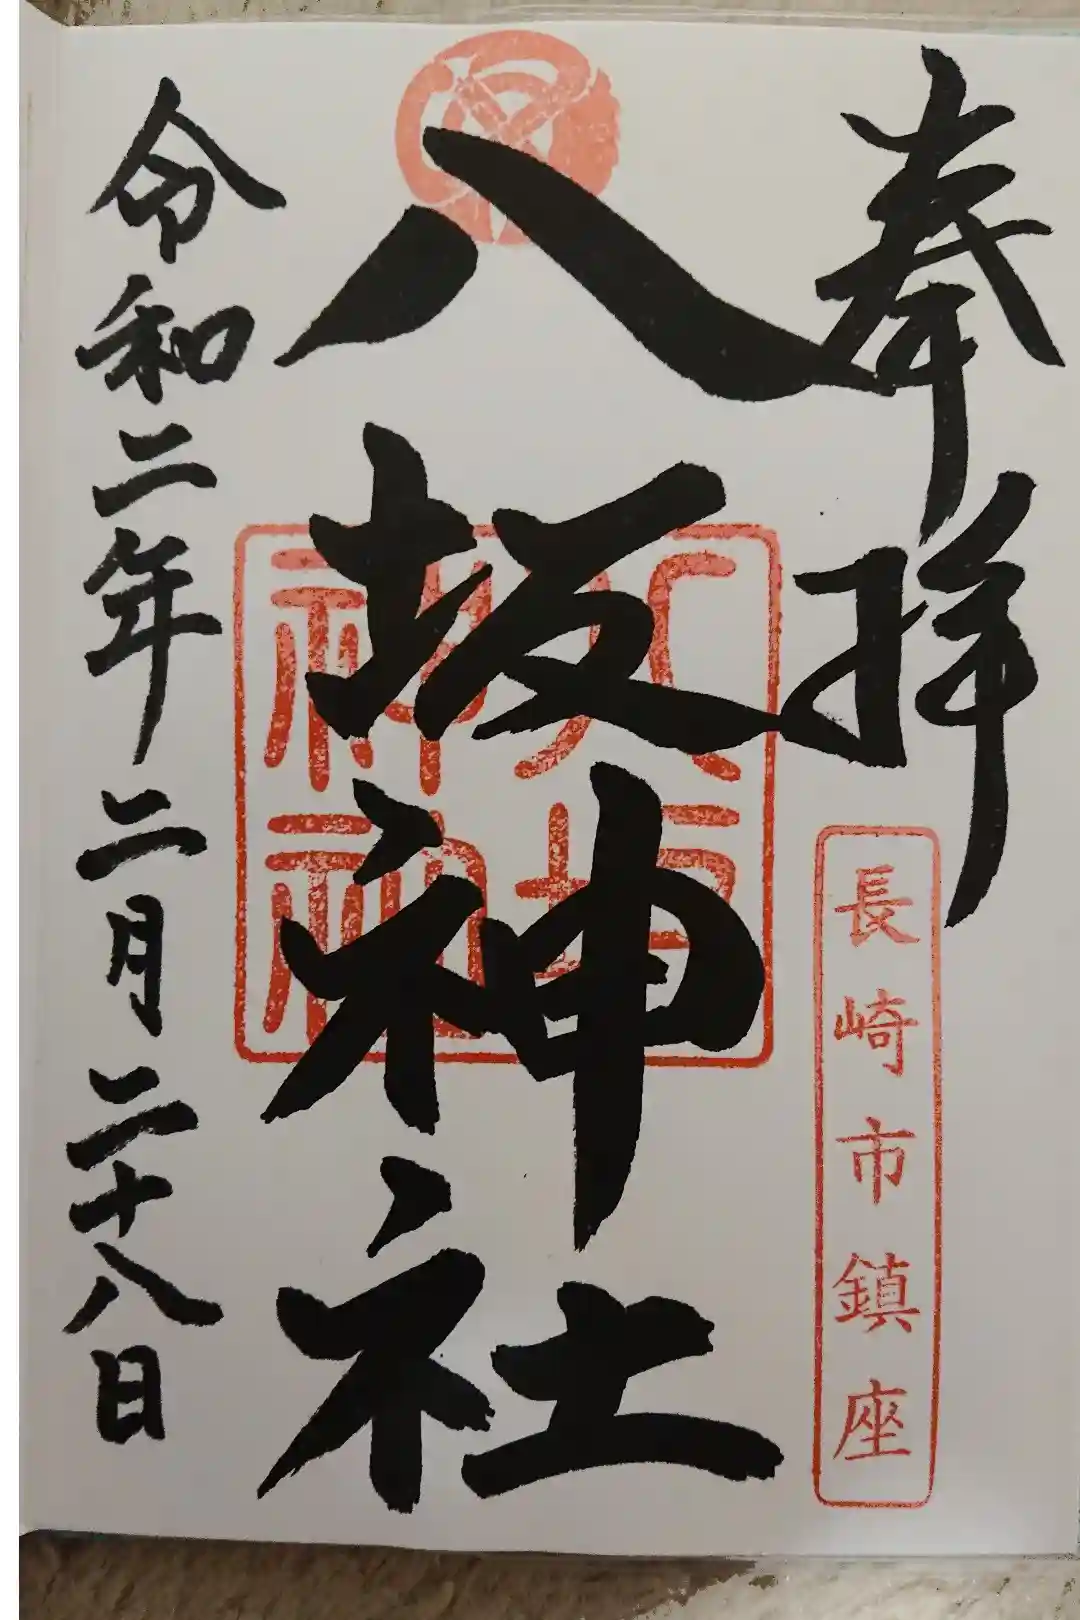 奉拝
長崎市鎮座
八坂神社
八坂
神社
令和二年二月二十八日